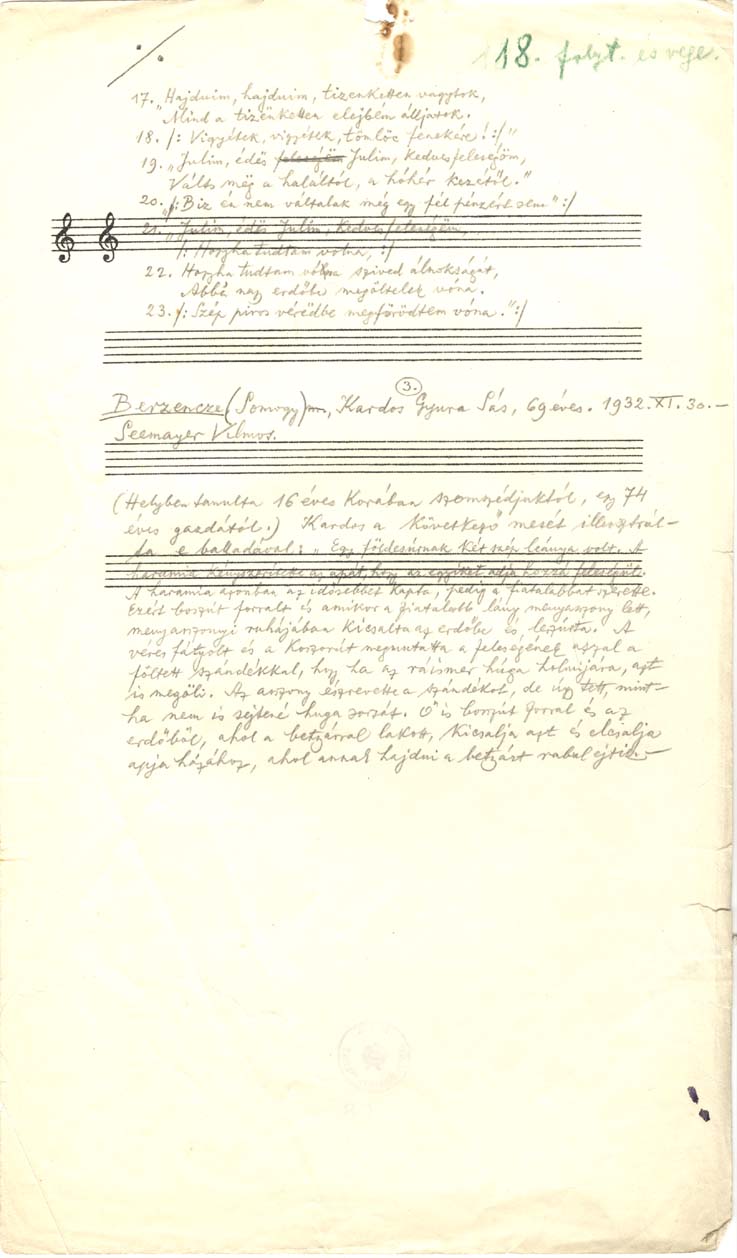 ·/·
118. folyt. és vége.
17. „Hajduim, hajduim, tizenketten vagytok,
Mind a tizënketten elejbém álljatok.
18. /: Vigyétek, vigyétek, tömlöc fenekére! :/"
19. „Julim, édës feleségëm Julim, kedves feleségöm,
Válts mëg a haláltól, a hóhér kezétől."
20. „/: Biz én nem váltalak mëg egy fél pénzért sem" :/
21. „Julim, édës Julim, kedves feleségëm,
/: Hogyha tudtam volna, :/
22. Hogyha tudtam vóna szived álnokságát,
Abba nagy erdőbe megöltelek vóna.
23. /: Szép piros vérëdbe megfürödtem vóna." :/
3.
Berzencze (Somogy) m, Kardos Gyura Sás, 69 éves. 1932. XI. 30. –
Seemayer Vilmos.
(Helyben tanulta 16 éves korában szomszédjuktól, egy 74
éves gazdától.) Kardos a következő mesét illusztrál-
ta e balladával: „Egy földesúrnak két szép leánya volt. A
haramia kényszerítette az apát, hogy az egyiket adja hozzá feleségül.
A haramia azonban az idősebbet kapta, pedig a fiatalabbat szerette.
Ezért boszút forralt és amikor a fiatalabb lány menyasszony lett,
menyasszonyi ruhájában kicsalta az erdőbe és leszúrta. A
véres fátyolt és a koszorút megmutatta a feleségének azzal a
föltett szándékkal, hogy ha az ráismer húga holmijára, azt
is megöli. Az asszony észrevette a szándékot, de úgy tett, mint-
ha nem is sejtené huga sorsát. Ő is boszút forral és az
erdőből, ahol a betyárral lakott, kicsalja azt és elcsalja
apja házához, ahol annak hajdui a betyárt rabul ejtik. –